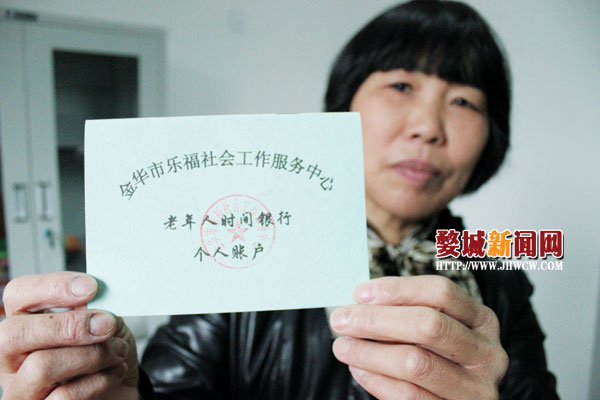 金华市乐福社会工作服务中心
老年人时间银行
个人账户
婺城新闻网
HTTP://WWW.JHWCW.COM